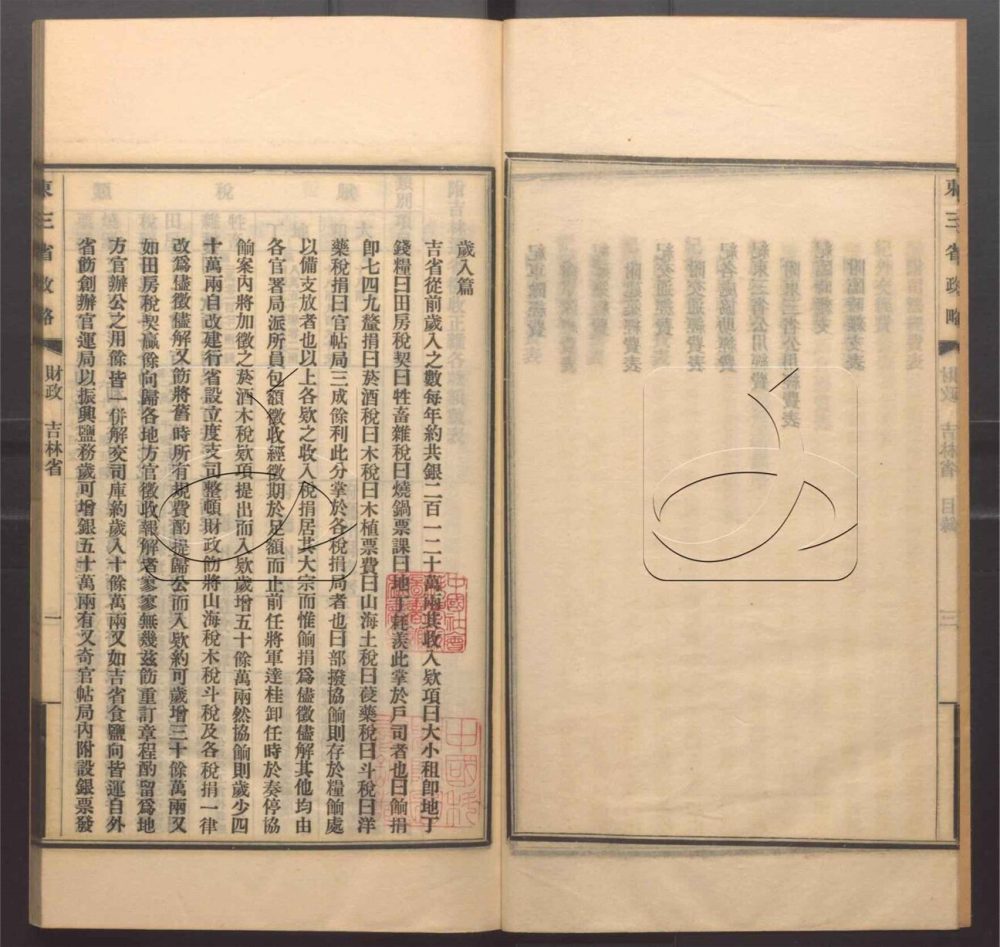 東三省政略
財政
吉林省
目錄
歲入篇
吉省從前歲入之數每年約共銀二百一二十萬兩其收入欵項曰大小租卽地丁
錢糧曰田房稅契曰牲畜雜稅曰燒鍋票課曰地丁耗羨此掌於戶司者也曰餉捐
卽七四九釐捐曰菸酒稅曰木稅曰木植票費曰山海土稅曰葠藥稅曰斗稅曰洋
藥稅捐曰官帖局三成餘利此分掌於各稅捐局者也曰部撥協餉則存於糧餉處
以備支放者也以上各欵之收入稅捐居其大宗而惟餉捐爲儘徵儘解其他均由
各官署局派所員包額徵收經徵期於足額而止前任將軍達桂卸任時於奏停協
餉案內將加徵之菸酒木稅欵項提出而入欵歲增五十餘萬兩然協餉則歲少四
十萬兩自改建行省設立度支司整頓財政飭將山海稅木稅斗稅及各稅捐一律
改爲儘徵儘解又飭將舊時所有規費酌提歸公而入欵約可歲增三十餘萬兩又
如田房稅契贏餘向歸各地方官徵收報解者寥寥無幾茲飭重訂章程酌留爲地
方官辦公之用餘皆一併解交司庫約歲入十餘萬兩又如吉省食鹽向皆運自外
省飭創辦官運局以振興鹽務歲可增銀五十萬兩有又奇官帖局內附設銀票發
東三省政略
財政
吉林省
一